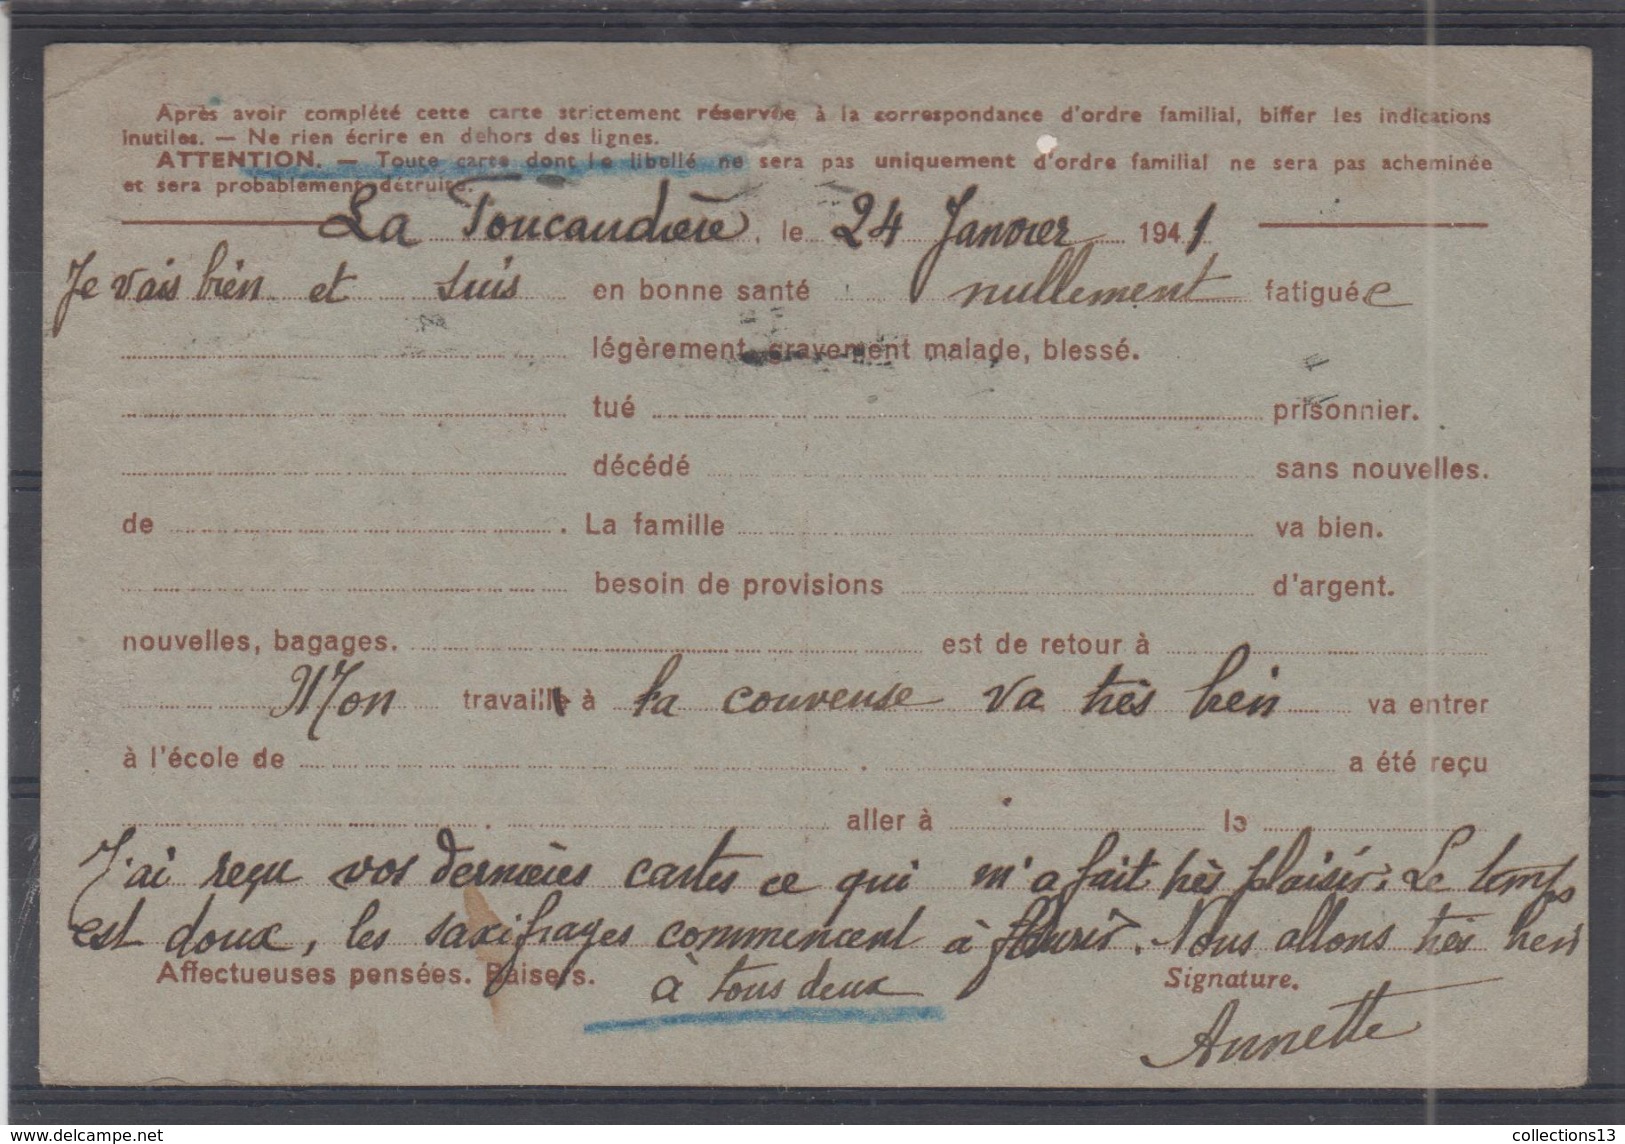 Après avoir complété cette carte strictement réservée à la correspondance d'ordre familial, biffer les indications
inutiles. — Ne rien écrire en dehors des lignes.
ATTENTION. — Toute carte dont le libellé ne sera pas uniquement d'ordre familial ne sera pas acheminée
et sera probablement détruite.
La Toucaudière, le 24 Janvier 1941
Je vais bien et suis en bonne santé nullement fatiguée
légèrement, gravement malade, blessé.
tué prisonnier.
décédé sans nouvelles.
de . La famille va bien.
besoin de provisions d'argent.
nouvelles, bagages. est de retour à
Mon travaille à la couveuse va très bien va entrer
à l'école de . a été reçu
. aller à le
J'ai reçu vos dernières cartes ce qui m'a fait très plaisir. Le temps
est doux, les saxifrages commencent à fleurir. Nous allons très bien
Affectueuses pensées. Baisers. à tous deux Signature.
Annette
collections13